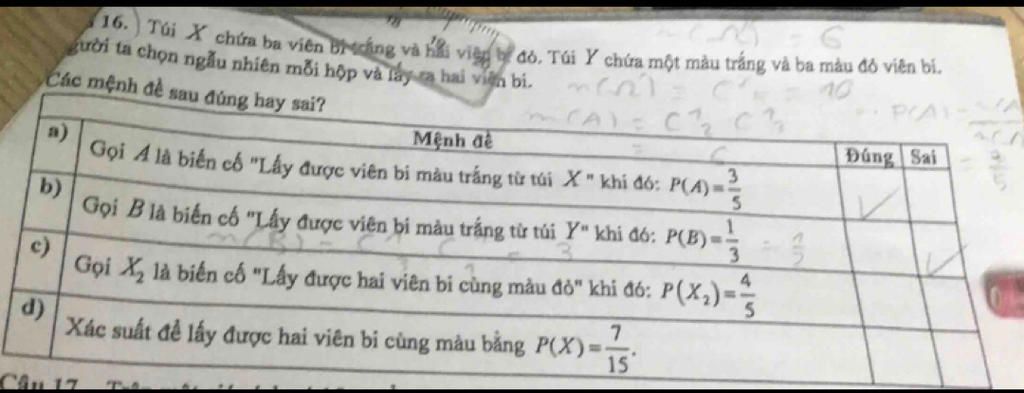 16. Túi X chứa ba viên bi trắng và hai viên bi đỏ. Túi Y chứa một màu trắng và ba màu đỏ viên bi.
gười ta chọn ngẫu nhiên mỗi hộp và lấy ra hai viên bi.
Các mệnh đề sau đúng hay sai?
Mệnh đề Đúng Sai
a) Gọi A là biến cố "Lấy được viên bi màu trắng từ túi X" khi đó: P(A)=3/5
b) Gọi B là biến cố "Lấy được viên bi màu trắng từ túi Y" khi đó: P(B)=1/3
c) Gọi X₂ là biến cố "Lấy được hai viên bi cùng màu đỏ" khi đó: P(X₂)=4/5
d) Xác suất để lấy được hai viên bi cùng màu bằng P(X)=7/15.
Câu 17